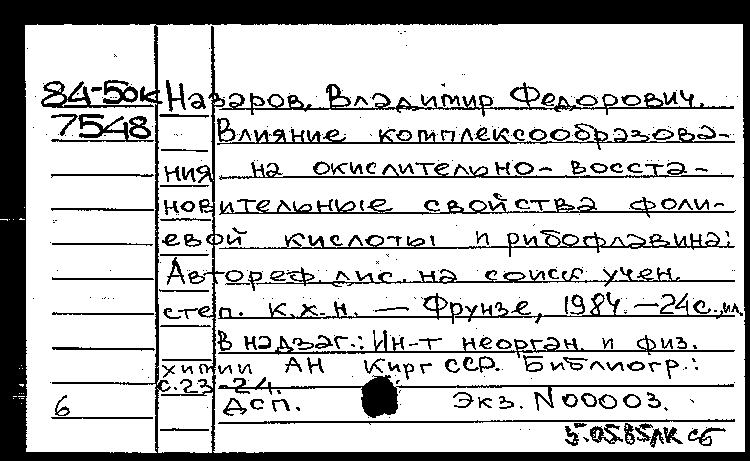 84-5ок Назаров, Владимир Федорович.
7548 Влияние комплексообразова-
ния на окислительно-восста-
новительные свойства фоли-
евой кислоты и рибофлавина:
Автореф. дис. на соиск учен.
степ. к.х.н. — Фрунзе, 1984. — 24с., ил.
В надзаг.: Ин-т неорган. и физ.
химии АН Кирг ССР. Библиогр.:
с.23-24.
6 Дсп. Экз. N00003.
5.05.85 ЛК сб